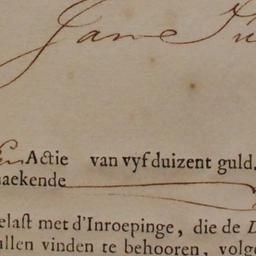 Jane
Een Actie van vyf duizent guld.
maekende
elast met d'Inroepinge, die de D
ullen vinden te behooren, volge